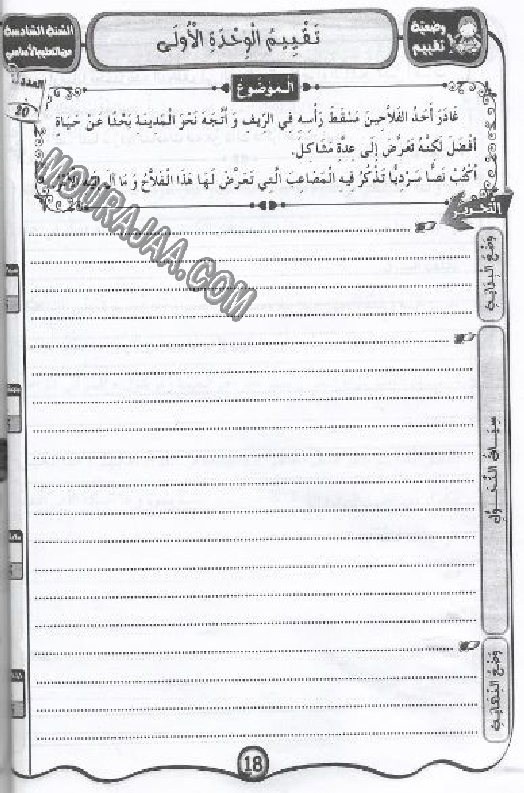 السنة السادسة
من التعليم الأساسي
تَقْيِيمُ الْوِحْدَةِ الْأُولَى
وضعيّة
تقييم
العدد
20
الْمَوْضُوعُ
غَادَرَ أَحَدُ الْفَلَّاحِينَ مَسْقَطَ رَأْسِهِ فِي الرِّيفِ وَ اتَّجَهَ نَحْوَ الْمَدِينَةِ بَحْثًا عَنْ حَيَاةٍ
أَفْضَلَ لَكِنَّهُ تَعَرَّضَ إِلَى عِدَّةِ مَشَاكِلَ.
أُكْتُبْ نَصًّا سَرْدِيًّا تَذْكُرُ فِيهِ الْمَصَاعِبَ الَّتِي تَعَرَّضَ لَهَا هَذَا الْفَلَّاحُ وَ مَا آلَ إِلَيْهِ
التّحرير
MOURAJAA.COM
وَضْعُ الْبِدَايَةِ
سِيَاقُ التَّحَوُّلِ
وَضْعُ النِّهَايَةِ
18